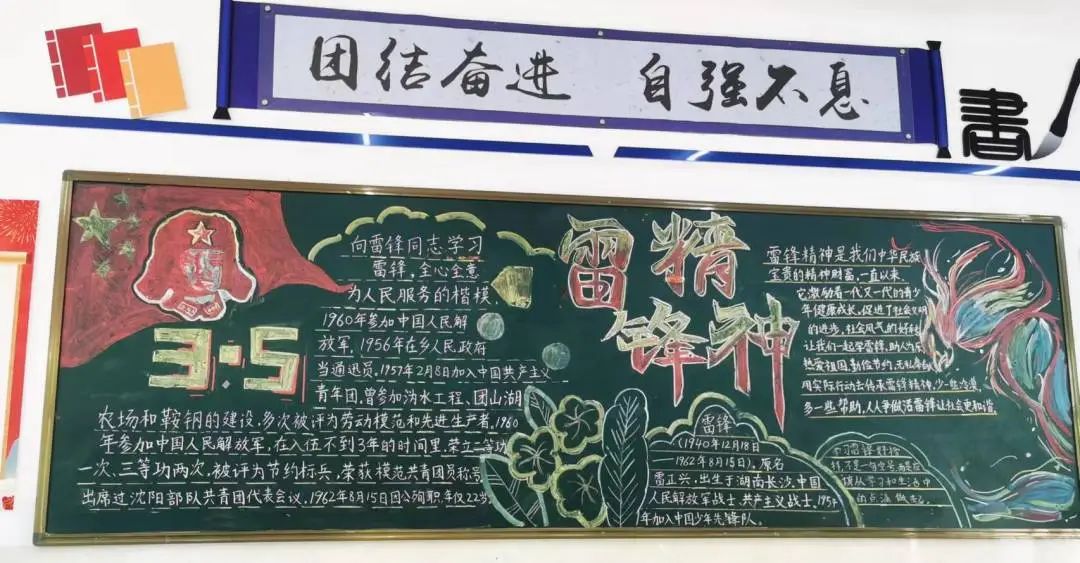 团结奋进 自强不息
書
3·5
向雷锋同志学习
雷锋,全心全意
为人民服务的楷模,
1960年参加中国人民解
放军,1956年在乡人民政府
当通迅员,1957年2月8日加入中国共产主义
青年团,曾参加沩水工程、团山湖
农场和鞍钢的建设,多次被评为劳动模范和先进生产者,1960
年参加中国人民解放军,在入伍不到3年的时间里,荣立二等功
一次、三等功两次,被评为节约标兵,荣获模范共青团员称号,
出席过沈阳部队共青团代表会议,1962年8月15日因公殉职,年仅22岁
雷锋
精神
雷锋
(1940年12月18日
1962年8月15日),原名
雷正兴,出生于湖南长沙,中国
人民解放军战士、共产主义战士,1954
年加入中国少年先锋队。
雷锋精神是我们中华民族
宝贵的精神财富,一直以来,
它激励着一代又一代的青少
年健康成长,促进了社会文明
的进步,社会风气的好转
让我们一起学雷锋,助人为乐
热爱祖国,勤俭节约,无私奉献
用实际行动去传承雷锋精神,少一些冷漠,
多一些帮助,人人争做活雷锋让社会更和谐
学习雷锋精神
从学习和生活中
的点滴做起